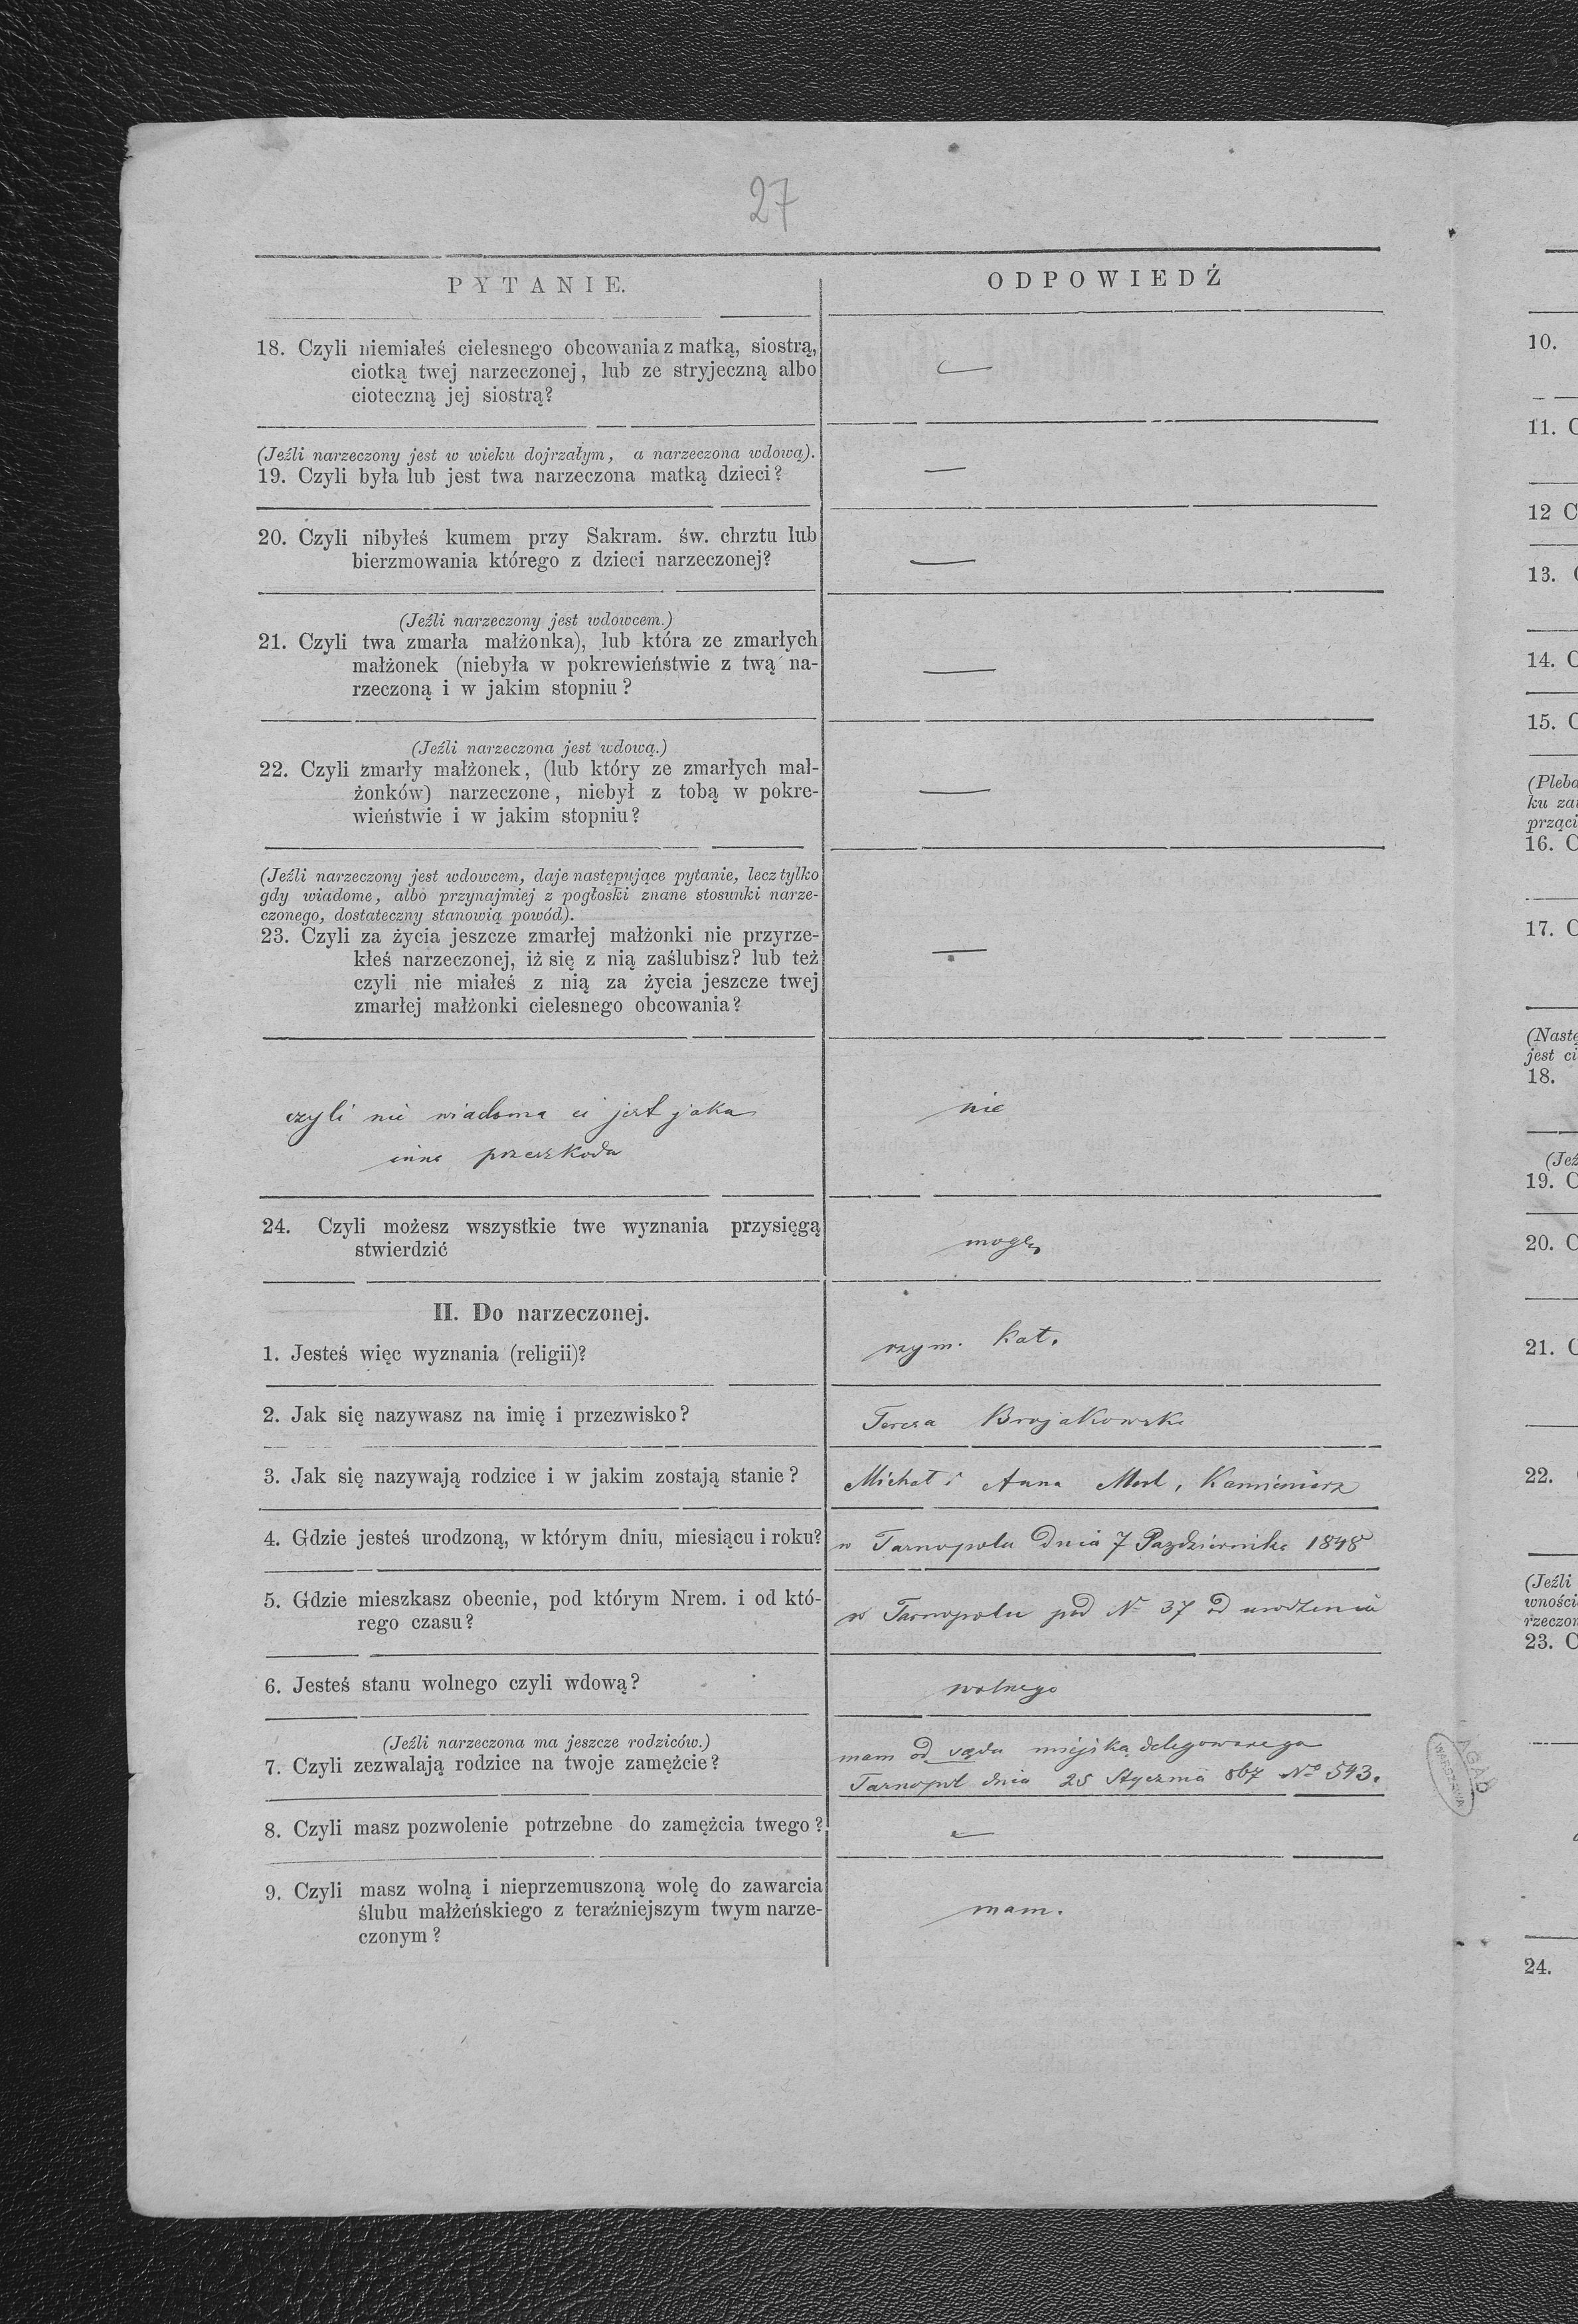 27
PYTANIE.
ODPOWIEDŹ
18. Czyli niemiałeś cielesnego obcowania z matką, siostrą,
ciotką twej narzeczonej, lub ze stryjeczną albo
cioteczną jej siostrą?
—
(Jeźli narzeczony jest w wieku dojrzałym, a narzeczona wdową).
19. Czyli była lub jest twa narzeczona matką dzieci?
—
20. Czyli nibyłeś kumem przy Sakram. św. chrztu lub
bierzmowania którego z dzieci narzeczonej?
—
(Jeźli narzeczony jest wdowcem.)
21. Czyli twa zmarła małżonka), lub która ze zmarłych
małżonek (niebyła w pokrewieństwie z twą na-
rzeczoną i w jakim stopniu?
—
(Jeźli narzeczona jest wdową.)
22. Czyli zmarły małżonek, (lub który ze zmarłych mał-
żonków) narzeczone, niebył z tobą w pokre-
wieństwie i w jakim stopniu?
—
(Jeźli narzeczony jest wdowcem, daje następujące pytanie, lecz tylko
gdy wiadome, albo przynajmiej z pogłoski znane stosunki narze-
czonego, dostateczny stanowią powód).
23. Czyli za życia jeszcze zmarłej małżonki nie przyrze-
kłeś narzeczonej, iż się z nią zaślubisz? lub też
czyli nie miałeś z nią za życia jeszcze twej
zmarłej małżonki cielesnego obcowania?
—
czyli nie wiadoma ci jest jaka
inna przeszkoda
nie
24. Czyli możesz wszystkie twe wyznania przysięgą
stwierdzić
mogę
II. Do narzeczonej.
1. Jesteś więc wyznania (religii)?
rzym. kat.
2. Jak się nazywasz na imię i przezwisko?
Teresa
3. Jak się nazywają rodzice i w jakim zostają stanie?
Michał i Anna Kamieniarz
4. Gdzie jesteś urodzoną, w którym dniu, miesiącu i roku?
w Tarnopolu Dnia 7 Pazdziernika 1848
5. Gdzie mieszkasz obecnie, pod którym Nrem. i od któ-
rego czasu?
w Tarnopolu pod N 37 od urodzenia
6. Jesteś stanu wolnego czyli wdową?
wolnego
(Jeźli narzeczona ma jeszcze rodziców.)
7. Czyli zezwalają rodzice na twoje zamężcie?
mam od sądu miejsko delegowanego
Tarnopol dnia 25 Stycznia 867 No 543.
8. Czyli masz pozwolenie potrzebne do zamężcia twego?
—
9. Czyli masz wolną i nieprzemuszoną wolę do zawarcia
ślubu małżeńskiego z teraźniejszym twym narze-
czonym?
mam.
AGAD
WARSZAWA
10.
11. C
12 C
13.
14. C
15. C
(Pleba
ku za
prząci
16. C
17. C
(Nastę
jest ci
18.
(Jeź
19. C
20. C
21. C
22.
(Jeźli
wności
rzeczon
23. C
24.